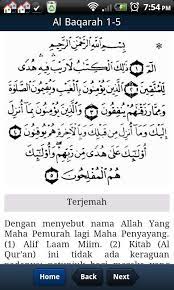 7:54 PM
Al Baqarah 1-5
بِسْمِ اللَّهِ الرَّحْمَٰنِ الرَّحِيمِ
الم ۝ ذَٰلِكَ الْكِتَابُ لَا رَيْبَ فِيهِ هُدًى
لِّلْمُتَّقِينَ ۝ الَّذِينَ يُؤْمِنُونَ بِالْغَيْبِ وَيُقِيمُونَ الصَّلَاةَ
وَمِمَّا رَزَقْنَاهُمْ يُنفِقُونَ ۝ وَالَّذِينَ يُؤْمِنُونَ بِمَا أُنزِلَ
إِلَيْكَ وَمَا أُنزِلَ مِن قَبْلِكَ وَبِالْآخِرَةِ هُمْ يُوقِنُونَ ۝
أُولَٰئِكَ عَلَىٰ هُدًى مِّن رَّبِّهِمْ وَأُولَٰئِكَ
هُمُ الْمُفْلِحُونَ ۝
Terjemah
Dengan menyebut nama Allah Yang
Maha Pemurah lagi Maha Penyayang.
(1) Alif Laam Miim. (2) Kitab (Al
Qur'an) ini tidak ada keraguan
Back Home Next